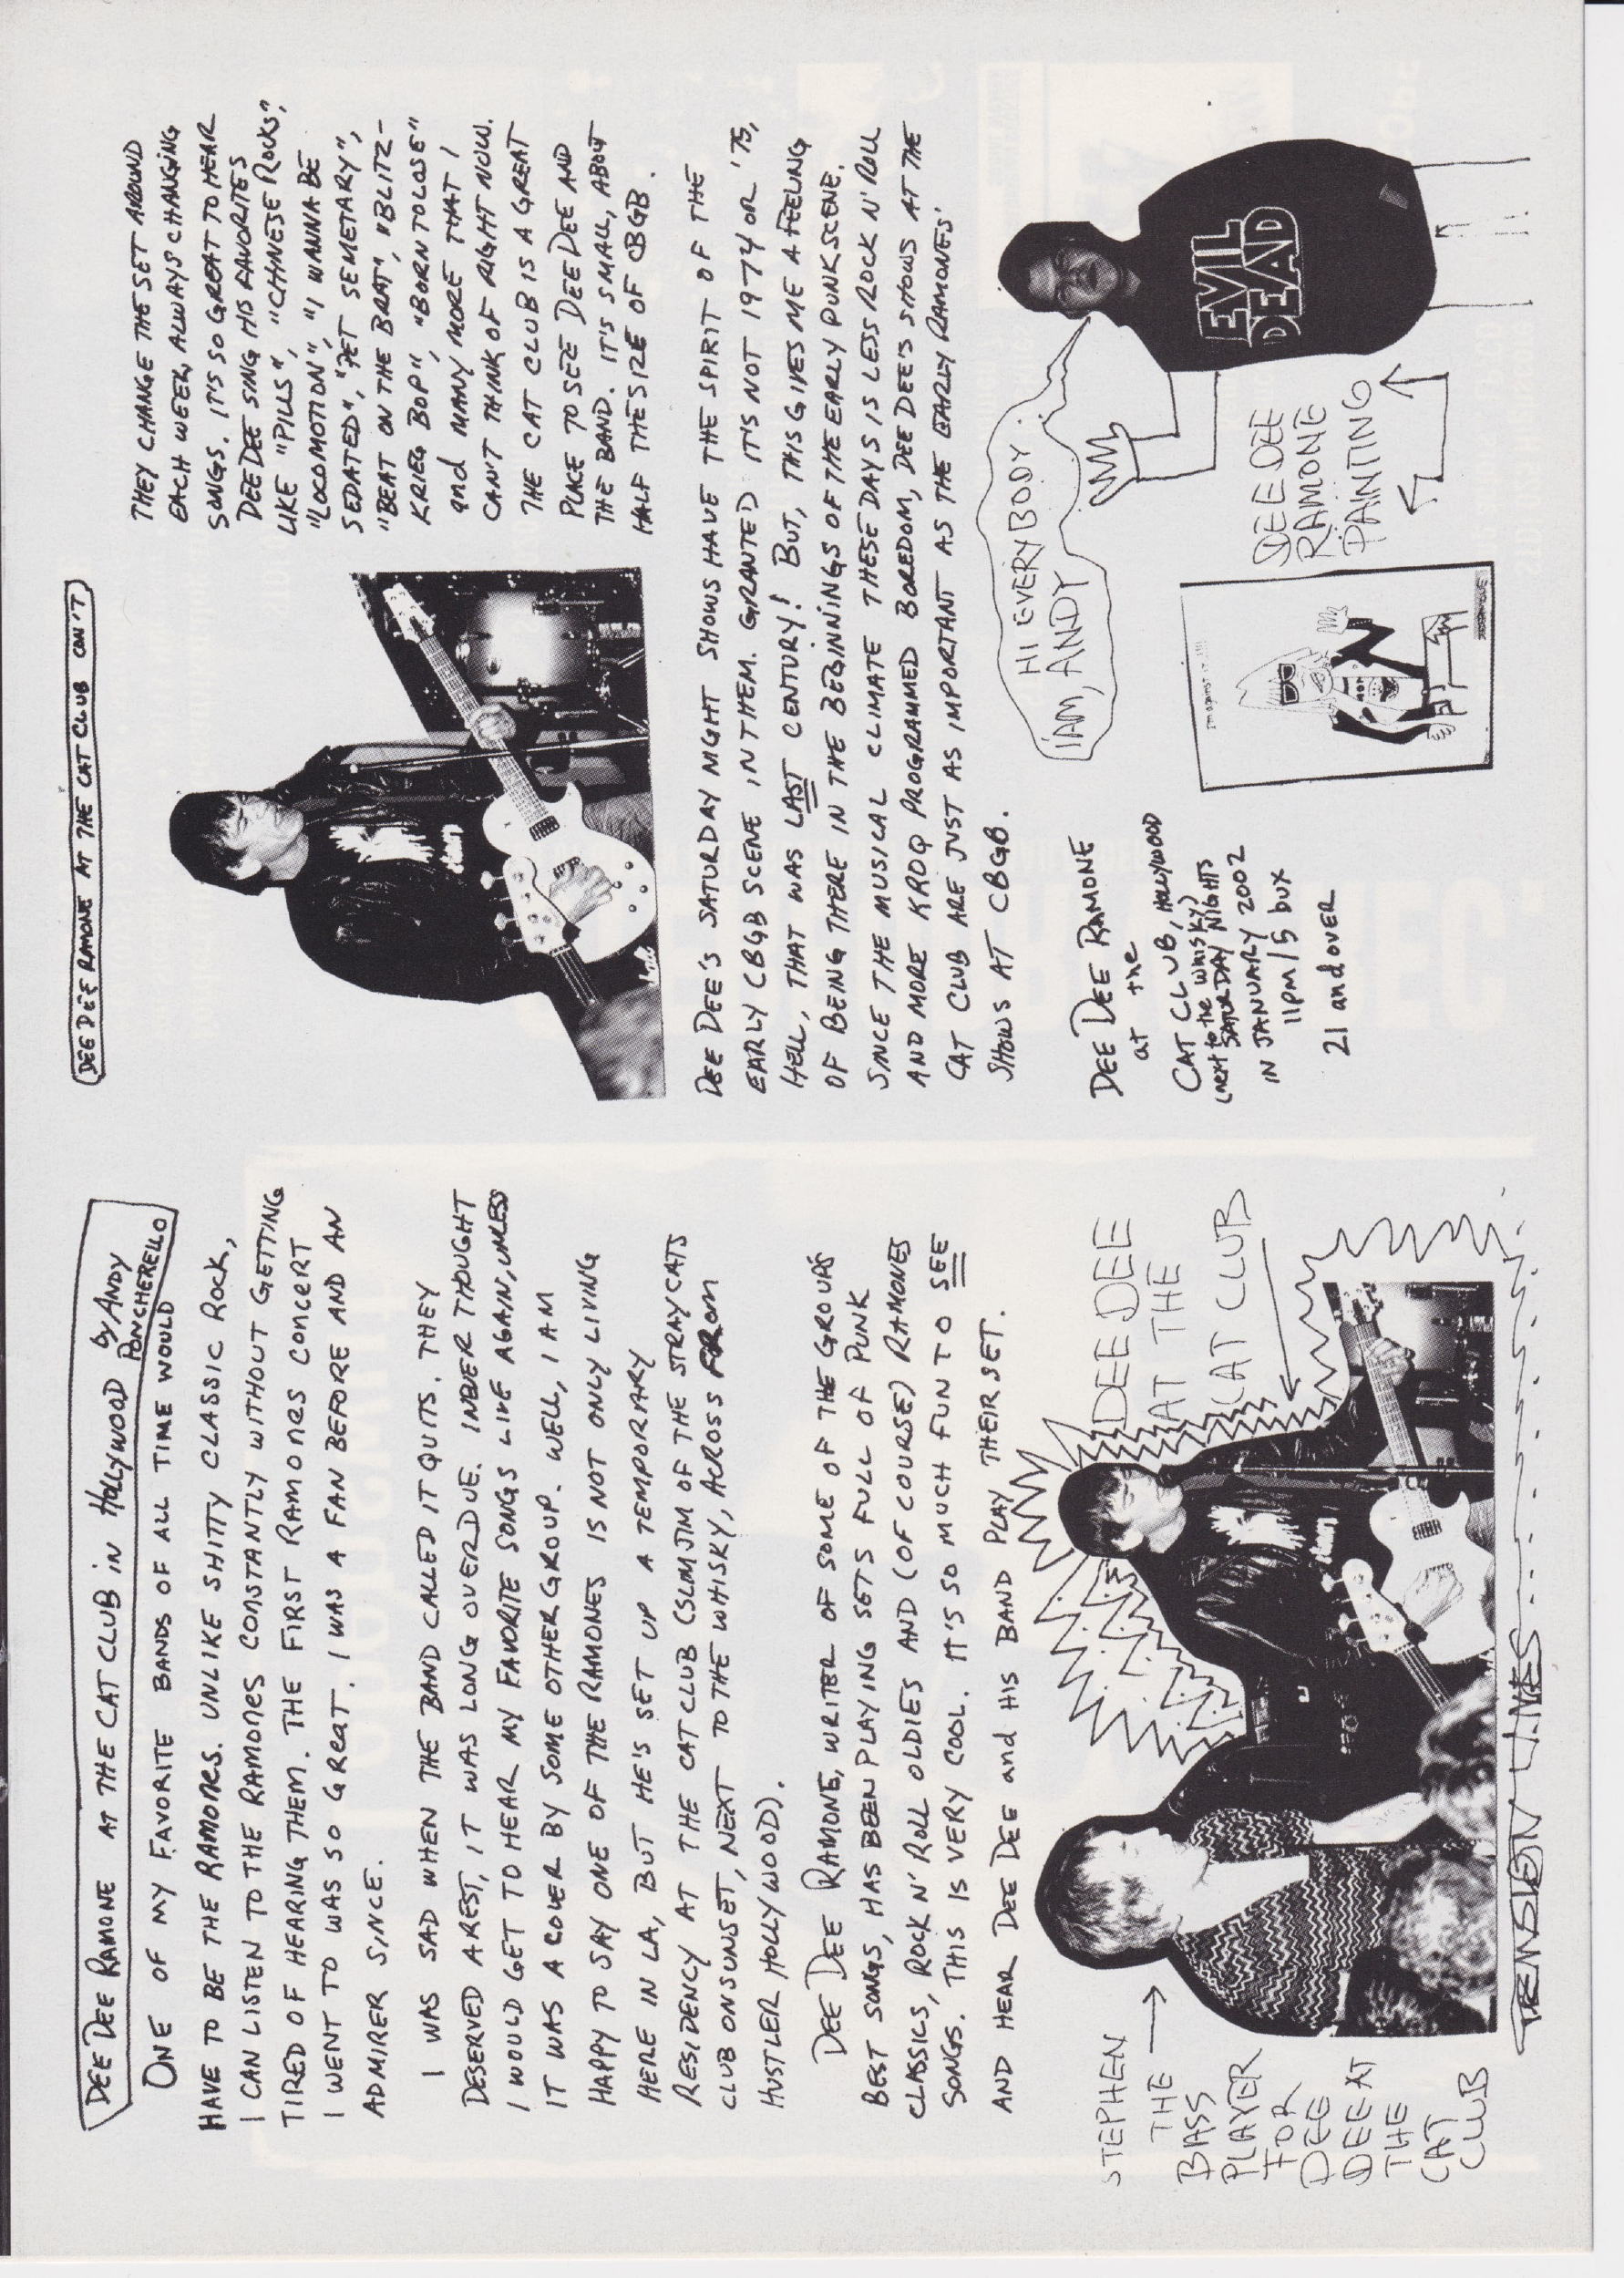 DEE DEE RAMONE AT THE CAT CLUB in HOLLYWOOD by ANDY
PONCHERELLO
ONE OF MY FAVORITE BANDS OF ALL TIME WOULD
HAVE TO BE THE RAMONES. UNLIKE SHITTY CLASSIC ROCK,
I CAN LISTEN TO THE RAMONES CONSTANTLY WITHOUT GETTING
TIRED OF HEARING THEM. THE FIRST RAMONES CONCERT
I WENT TO WAS SO GREAT. I WAS A FAN BEFORE AND AN
ADMIRER SINCE.
I WAS SAD WHEN THE BAND CALLED IT QUITS. THEY
DESERVED A REST, IT WAS LONG OVERDUE. I NEVER THOUGHT
I WOULD GET TO HEAR MY FAVORITE SONGS LIVE AGAIN, UNLESS
IT WAS A COVER BY SOME OTHER GROUP. WELL, I AM
HAPPY TO SAY ONE OF THE RAMONES IS NOT ONLY LIVING
HERE IN LA, BUT HE'S SET UP A TEMPORARY
RESIDENCY AT THE CAT CLUB (SLIM JIM OF THE STRAY CATS
CLUB ON SUNSET, NEXT TO THE WHISKY, ACROSS FROM
HUSTLER HOLLYWOOD).
DEE DEE RAMONE, WRITER OF SOME OF THE GROUPS
BEST SONGS, HAS BEEN PLAYING SETS FULL OF PUNK
CLASSICS, ROCK N' ROLL OLDIES AND (OF COURSE) RAMONES
SONGS. THIS IS VERY COOL. IT'S SO MUCH FUN TO SEE
AND HEAR DEE DEE and HIS BAND PLAY THEIR SET.
STEPHEN
THE
BASS
PLAYER
FOR
DEE
DEE AT
THE
CAT
CLUB
DEE DEE
AT THE
CAT CLUB
DEE DEE RAMONE AT THE CAT CLUB CON'T
THEY CHANGE THE SET AROUND
EACH WEEK, ALWAYS CHANGING
SONGS. IT'S SO GREAT TO HEAR
DEE DEE SING HIS FAVORITES
LIKE "PILLS", "CHINESE ROCKS",
"LOCOMOTION", "I WANNA BE
SEDATED", "PET SEMETARY",
"BEAT ON THE BRAT", "BLITZ-
KRIEG BOP", "BORN TO LOSE"
and MANY MORE THAT I
CAN'T THINK OF RIGHT NOW.
THE CAT CLUB IS A GREAT
PLACE TO SEE DEE DEE AND
THE BAND. IT'S SMALL, ABOUT
HALF THE SIZE OF CBGB.
DEE DEE'S SATURDAY NIGHT SHOWS HAVE THE SPIRIT OF THE
EARLY CBGB SCENE IN THEM. GRANTED IT'S NOT 1974 OR '75,
HELL, THAT WAS LAST CENTURY! BUT, THIS GIVES ME A FEELING
OF BEING THERE IN THE BEGINNINGS OF THE EARLY PUNK SCENE.
SINCE THE MUSICAL CLIMATE THESE DAYS IS LESS ROCK N' ROLL
AND MORE KROQ PROGRAMMED BOREDOM, DEE DEE'S SHOWS AT THE
CAT CLUB ARE JUST AS IMPORTANT AS THE EARLY RAMONES'
SHOWS AT CBGB.
DEE DEE RAMONE
at the
CAT CLUB, HOLLYWOOD
(next to the WHISKY)
SATURDAY NIGHTS
IN JANUARY 2002
11pm / 5 bux
21 and over
HI EVERYBODY
I AM, ANDY
EVIL
DEAD
DEE DEE
RAMONE
PAINTING